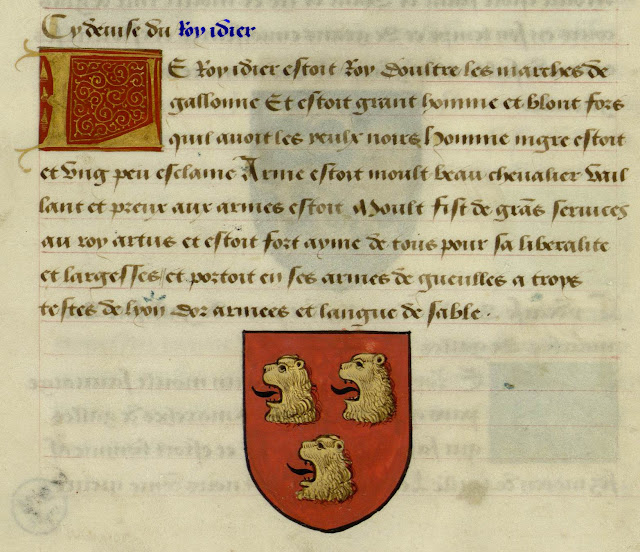 Cy deuise du Roy idier
LE Roy idier estoit Roy doultre les marches de
gallonne Et estoit grant homme et blont fors
quil auoit les yeulx noirs homme mgre estoit
et vng peu esclame Arme estoit moult beau cheualier vail
lant et preux aux armes estoit Moult fist de grãs seruices
au roy artus et estoit fort ayme de tous pour sa liberalite
et largesses et portoit en ses armes de gueulles a troys
testes de lyon dor armees et langue de sable .